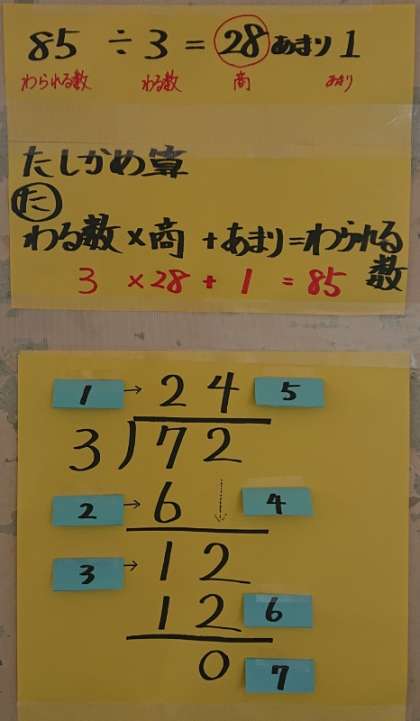 85 ÷ 3 = 28 あまり 1
わられる数 わる数 商 あまり
たしかめ算
た
わる数 × 商 + あまり = わられる数
3 × 28 + 1 = 85
1 → 2 4 5
3 ) 7 2
2 → 6 4
3 → 1 2
1 2 6
0 7